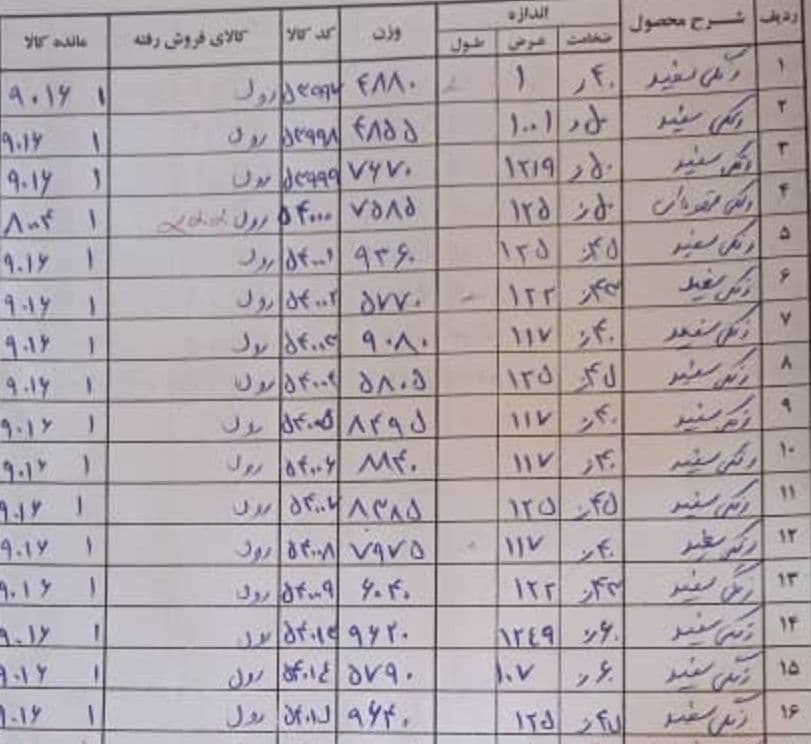 ردیف شرح محصول اندازه وزن کد کالا کالای فروش رفته مانده کالا
ضخامت عرض طول
۱ رنگی سفید ۴۰ر ۱ ۴۸۸۰ ۵۳۹۹۷ رول ۱ ۹۰۱۶
۲ رنگی سفید ۵۰ر ۱۰۰۱ ۴۸۵۵ ۵۳۹۹۸ رول ۱ ۹۰۱۶
۳ رنگی سفید ۵۰ر ۱۲۱۹ ۷۶۷۰ ۵۳۹۹۹ رول ۱ ۹۰۱۶
۴ رنگی ۵۰ر ۱۲۵ ۷۵۸۵ ۵۴۰۰۰ رول ۱ ۸۰۰۴
۵ رنگی سفید ۴۵ر ۱۲۵ ۹۳۶۰ ۵۴۰۰۱ رول ۱ ۹۰۱۶
۶ رنگی سفید ۴۳ر ۱۲۲ ۵۷۷۰ ۵۴۰۰۲ رول ۱ ۹۰۱۶
۷ رنگی سفید ۴۰ر ۱۱۷ ۹۰۸۰ ۵۴۰۰۳ رول ۱ ۹۰۱۶
۸ رنگی سفید ۴۵ر ۱۲۵ ۵۸۰۵ ۵۴۰۰۴ رول ۱ ۹۰۱۶
۹ رنگی سفید ۴۰ر ۱۱۷ ۸۴۹۵ ۵۴۰۰۵ رول ۱ ۹۰۱۶
۱۰ رنگی سفید ۴۰ر ۱۱۷ ۸۸۴۰ ۵۴۰۰۶ رول ۱ ۹۰۱۶
۱۱ رنگی سفید ۴۵ر ۱۲۵ ۸۳۸۵ ۵۴۰۰۷ رول ۱ ۹۰۱۶
۱۲ رنگی سفید ۴۰ر ۱۱۷ ۷۹۷۵ ۵۴۰۰۸ رول ۱ ۹۰۱۶
۱۳ رنگی سفید ۴۳ر ۱۲۲ ۶۰۴۰ ۵۴۰۰۹ رول ۱ ۹۰۱۶
۱۴ رنگی سفید ۶۰ر ۱۲۴۹ ۹۶۲۰ ۵۴۰۱۳ رول ۱ ۹۰۱۶
۱۵ رنگی سفید ۶۰ر ۱۰۷ ۵۷۹۰ ۵۴۰۱۴ رول ۱ ۹۰۱۶
۱۶ رنگی سفید ۴۵ر ۱۲۵ ۹۶۴۰ ۵۴۰۱۵ رول ۱ ۹۰۱۶